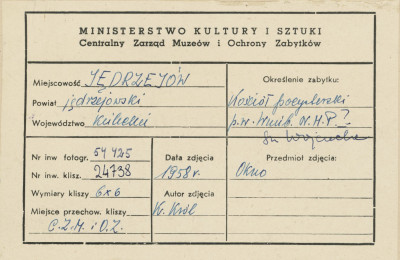 MINISTERSTWO KULTURY I SZTUKI
Centralny Zarząd Muzeów i Ochrony Zabytków
Miejscowość JĘDRZEJÓW
Powiat jędrzejowski
Województwo kielecki
Określenie zabytku:
Kościół pocysterski
p.w. Wnieb. N.M.P?
Św. Wojciecha
Nr inw fotogr. 54425
Nr inw. klisz. 24738
Wymiary kliszy 6x6
Miejsce przechow. kliszy
C.Z.M. i O.Z.
Data zdjęcia
1958 r.
Autor zdjęcia
K. Król
Przedmiot zdjęcia:
Okno